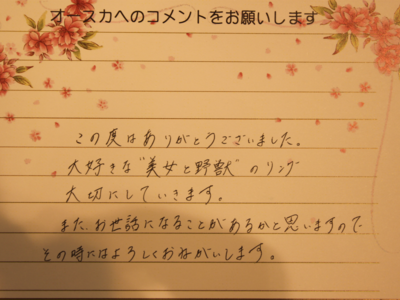 オースカへのコメントをお願いします
この度はありがとうございました。
大好きな"美女と野獣"のリング
大切にしていきます。
また、お世話になることがあるかと思いますので
その時にはよろしくおねがいします。